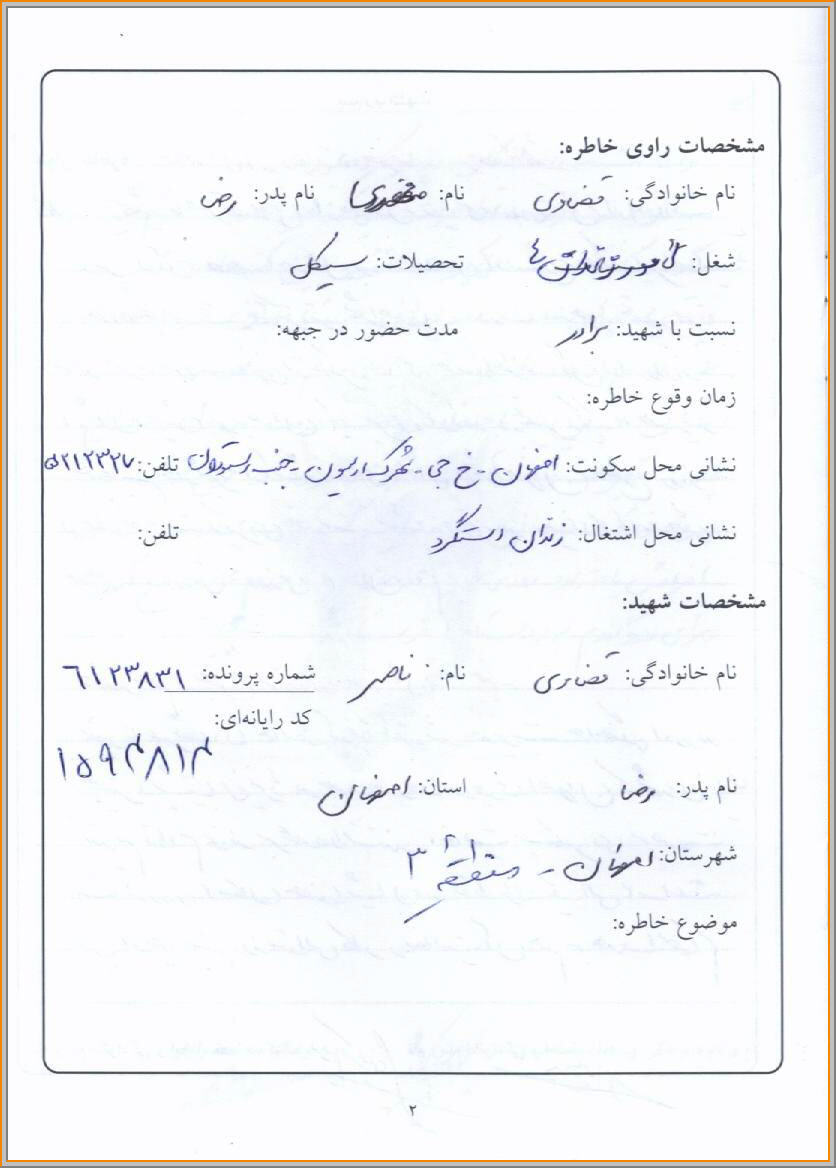 مشخصات راوی خاطره:
نام خانوادگی: قضاوی نام: نام پدر: رضا
شغل: تحصیلات: سیکل
نسبت با شهید: برادر مدت حضور در جبهه:
زمان وقوع خاطره:
نشانی محل سکونت: اصفهان - خ جی - شهرک - جنب تلفن: ۵۲۱۲۳۲۷
نشانی محل اشتغال: زندان دستگرد تلفن:
مشخصات شهید:
نام خانوادگی: قضاوی نام: ناصر شماره پرونده: ٦١٢٣٨٣١
کد رایانه‌ای:
نام پدر: رضا استان: اصفهان
شهرستان: اصفهان - منطقه ۳
موضوع خاطره:
۲